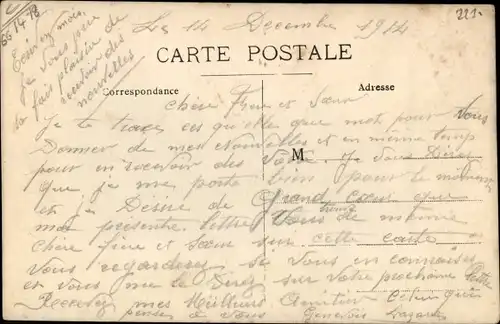 Le 14 Decembre 1914
221.
CARTE POSTALE
Correspondance
Adresse
Ecrivez moi,
je Vous prie
sa fais plaisir de
recevoir des
nouvelles
Chère Frere et Sœur
Je te trace ces quelque mot pour Vous
Donner de mes Nouvelles et en même temp
pour en recevoir des Votre Je Vous Dirai
M
que je me porte bien pour le moment
et je Désire de Grand cœur que
ma présente lettre Vous trouve de meme
Chère frere et Sœur sur cette carte
Vous regarderez si Vous en connaissez
et Vous me le Direz sur Votre prochaine lettre
Recevez mes Meilleurs Amitier Celui qui
pense à Vous Genevois